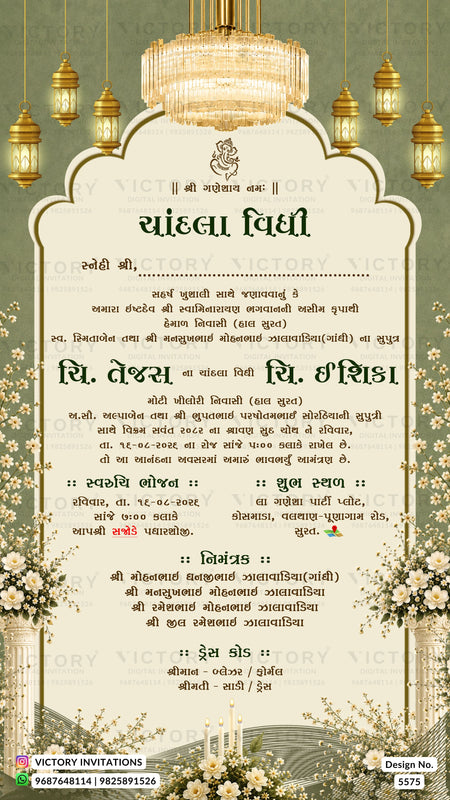 || શ્રી ગણેશાય નમઃ ||
ચાંદલા વિધી
સ્નેહી શ્રી,
સહર્ષ ખુશાલી સાથે જણાવવાનું કે
અમારા ઈષ્ટદેવ શ્રી સ્વામિનારાયણ ભગવાનની અસીમ કૃપાથી
હેમાળ નિવાસી (હાલ સુરત)
સ્વ. સ્મિતાબેન તથા શ્રી મનસુખભાઈ મોહનભાઈ ઝાલાવાડિયા(ગાંધી) ના સુપુત્ર
ચિ. તેજસ ના ચાંદલા વિધી ચિ. ઈશિકા
મોટી ખીલોરી નિવાસી (હાલ સુરત)
અ.સૌ. અલ્પાબેન તથા શ્રી ભુપતભાઈ પરષોતમભાઈ સોરઠિયાની સુપુત્રી
સાથે વિક્રમ સવંત ૨૦૮૨ ના શ્રાવણ સુદ ચોથ ને રવિવાર,
તા. ૧૬-૦૮-૨૦૨૬ ના રોજ સાંજે ૫ઃ૦૦ કલાકે રાખેલ છે.
તો આ આનંદના અવસરમાં અમારું ભાવભર્યું આમંત્રણ છે.
:: સ્વરુચિ ભોજન ::
રવિવાર, તા. ૧૬-૦૮-૨૦૨૬
સાંજે ૭ઃ૦૦ કલાકે
આપશ્રી સજોડે પધારશોજી.
:: શુભ સ્થળ ::
ધ લા ગણેશા પાર્ટી પ્લોટ,
કોસમાડા, વલથાણ-પૂણાગામ રોડ,
સુરત.
:: નિમંત્રક ::
શ્રી મોહનભાઈ ધનજીભાઈ ઝાલાવાડિયા(ગાંધી)
શ્રી મનસુખભાઈ મોહનભાઈ ઝાલાવાડિયા
શ્રી રમેશભાઈ મોહનભાઈ ઝાલાવાડિયા
શ્રી જીલ રમેશભાઈ ઝાલાવાડિયા
:: ડ્રેસ કોડ ::
શ્રીમાન - બ્લેઝર / ફોર્મલ
શ્રીમતી - સાડી / ડ્રેસ
VICTORY INVITATIONS
9687648114 | 9825891526
Design No.
5575